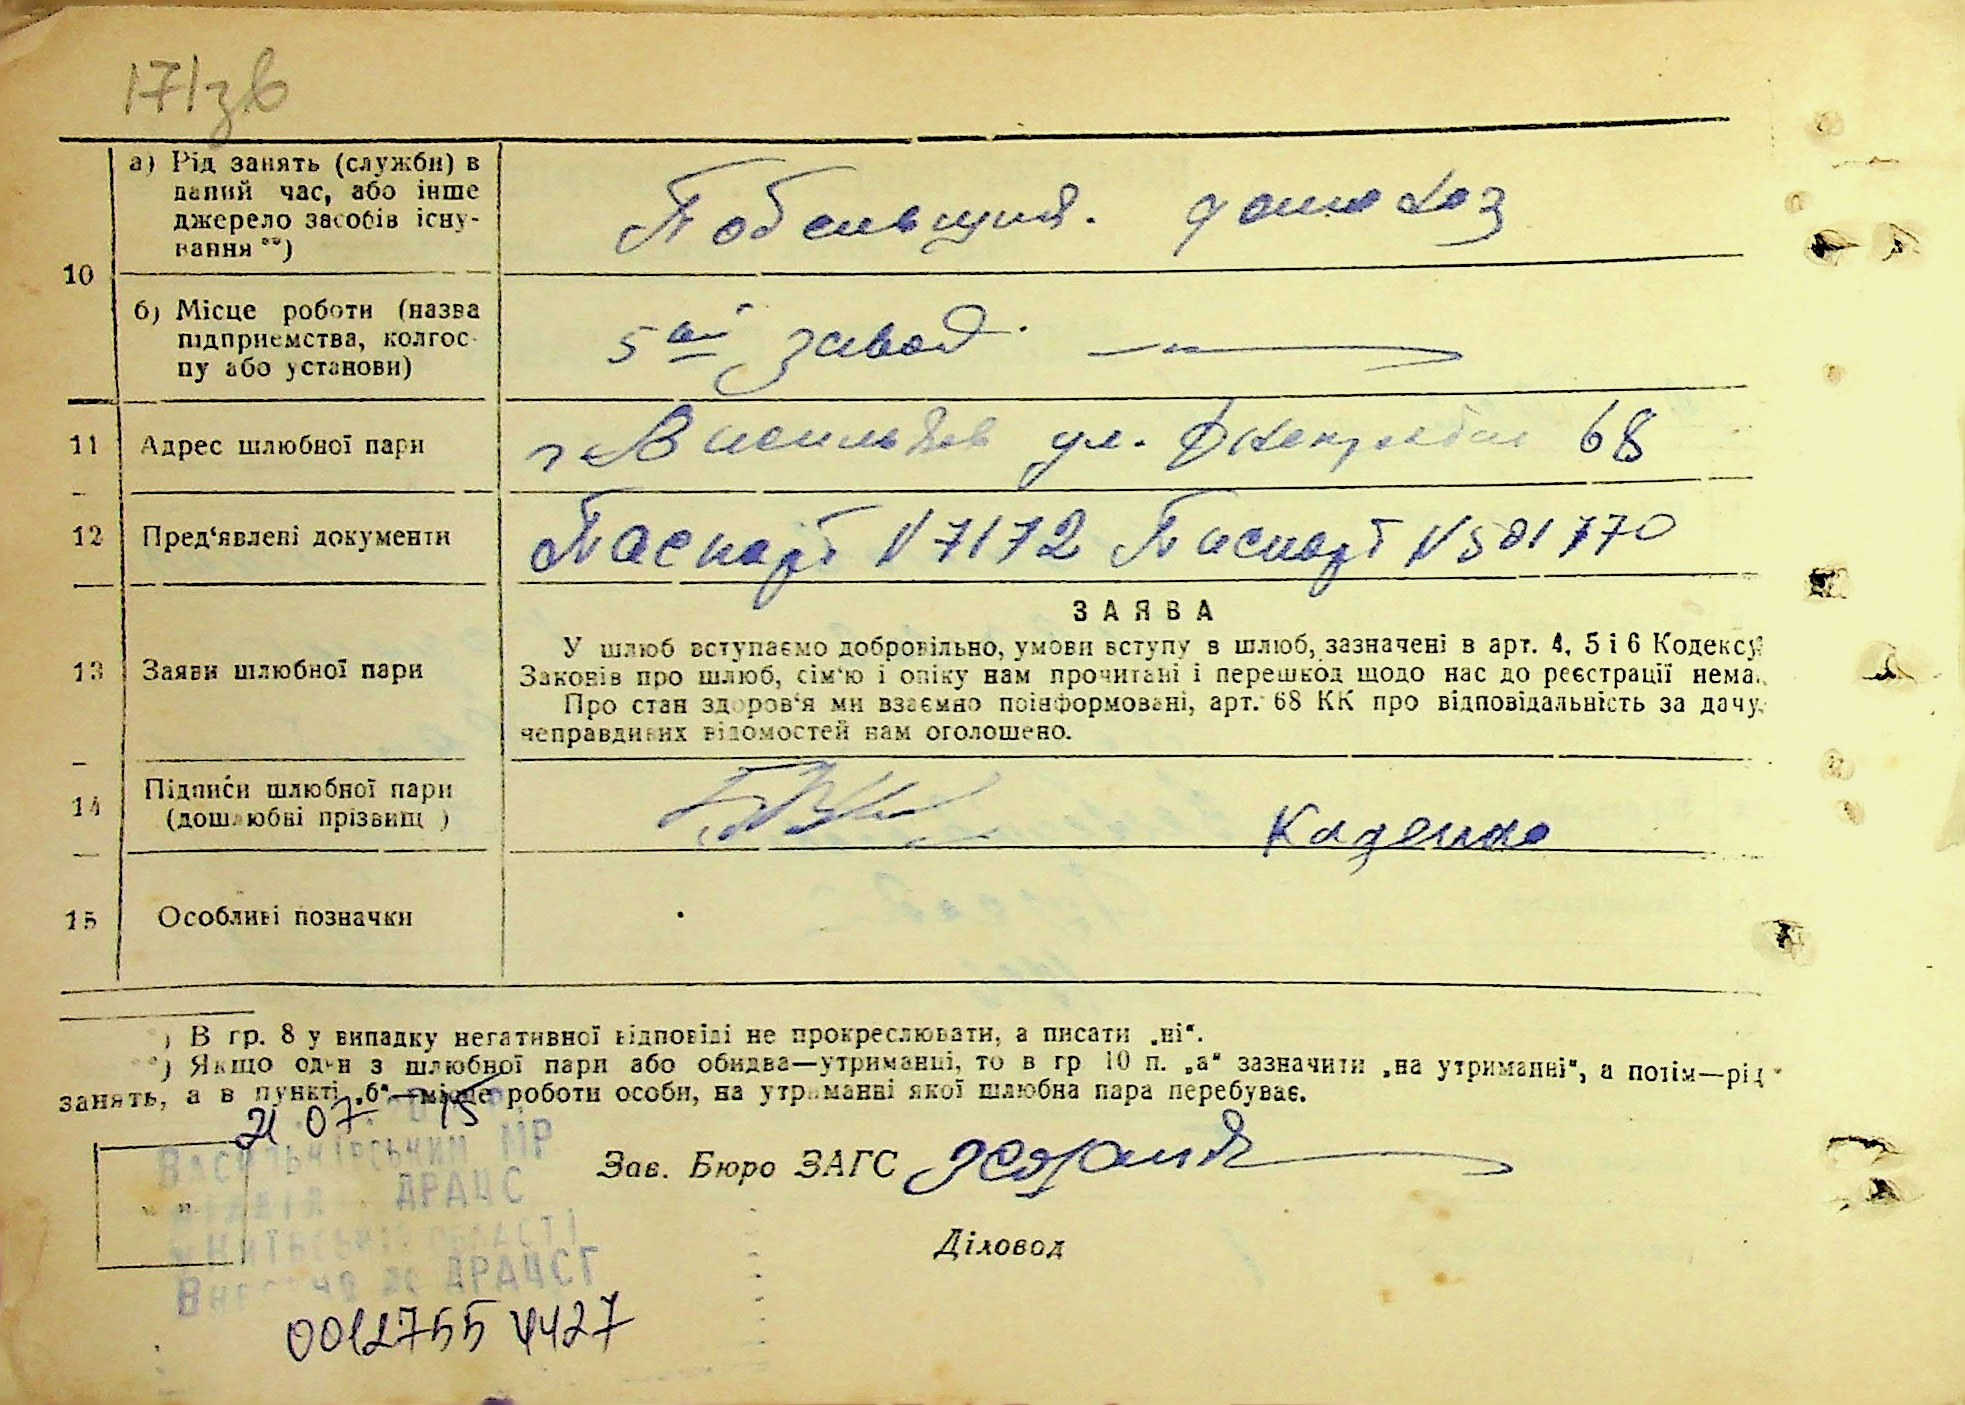 171зв
10
а) Рід занять (служби) в
даний час, або інше
джерело засобів існу-
вання **)
Побельщик.
б) Місце роботи (назва
підприємства, колгос-
пу або установи)
5ый завод.
11 Адрес шлюбної пари
г. Васильков ул. 68
12 Пред'явлені документи
Паспорт N 7172 Паспорт N 501770
ЗАЯВА
13 Заяви шлюбної пари
У шлюб вступаємо добровільно, умови вступу в шлюб, зазначені в арт. 4, 5 і 6 Кодексу
Законів про шлюб, сім'ю і опіку нам прочитані і перешкод щодо нас до реєстрації нема.
Про стан здоров'я ми взаємно поінформовані, арт. 68 КК про відповідальність за дачу
неправдивих відомостей нам оголошено.
14 Підписи шлюбної пари
(дошлюбні прізвищ )
15 Особливі позначки
*) В гр. 8 у випадку негативної відповіді не прокреслювати, а писати „ні“.
**) Якщо один з шлюбної пари або обидва—утриманці, то в гр 10 п. „а“ зазначити „на утриманні“, а потім—рід
занять, а в пункті „б“—місце роботи особи, на утриманні якої шлюбна пара перебуває.
21 07 15
Васильківський МР
відділ ДРАЦС
Київській області
Внесено до ДРАЦСГ
Зав. Бюро ЗАГС
Діловод
0012755 4427